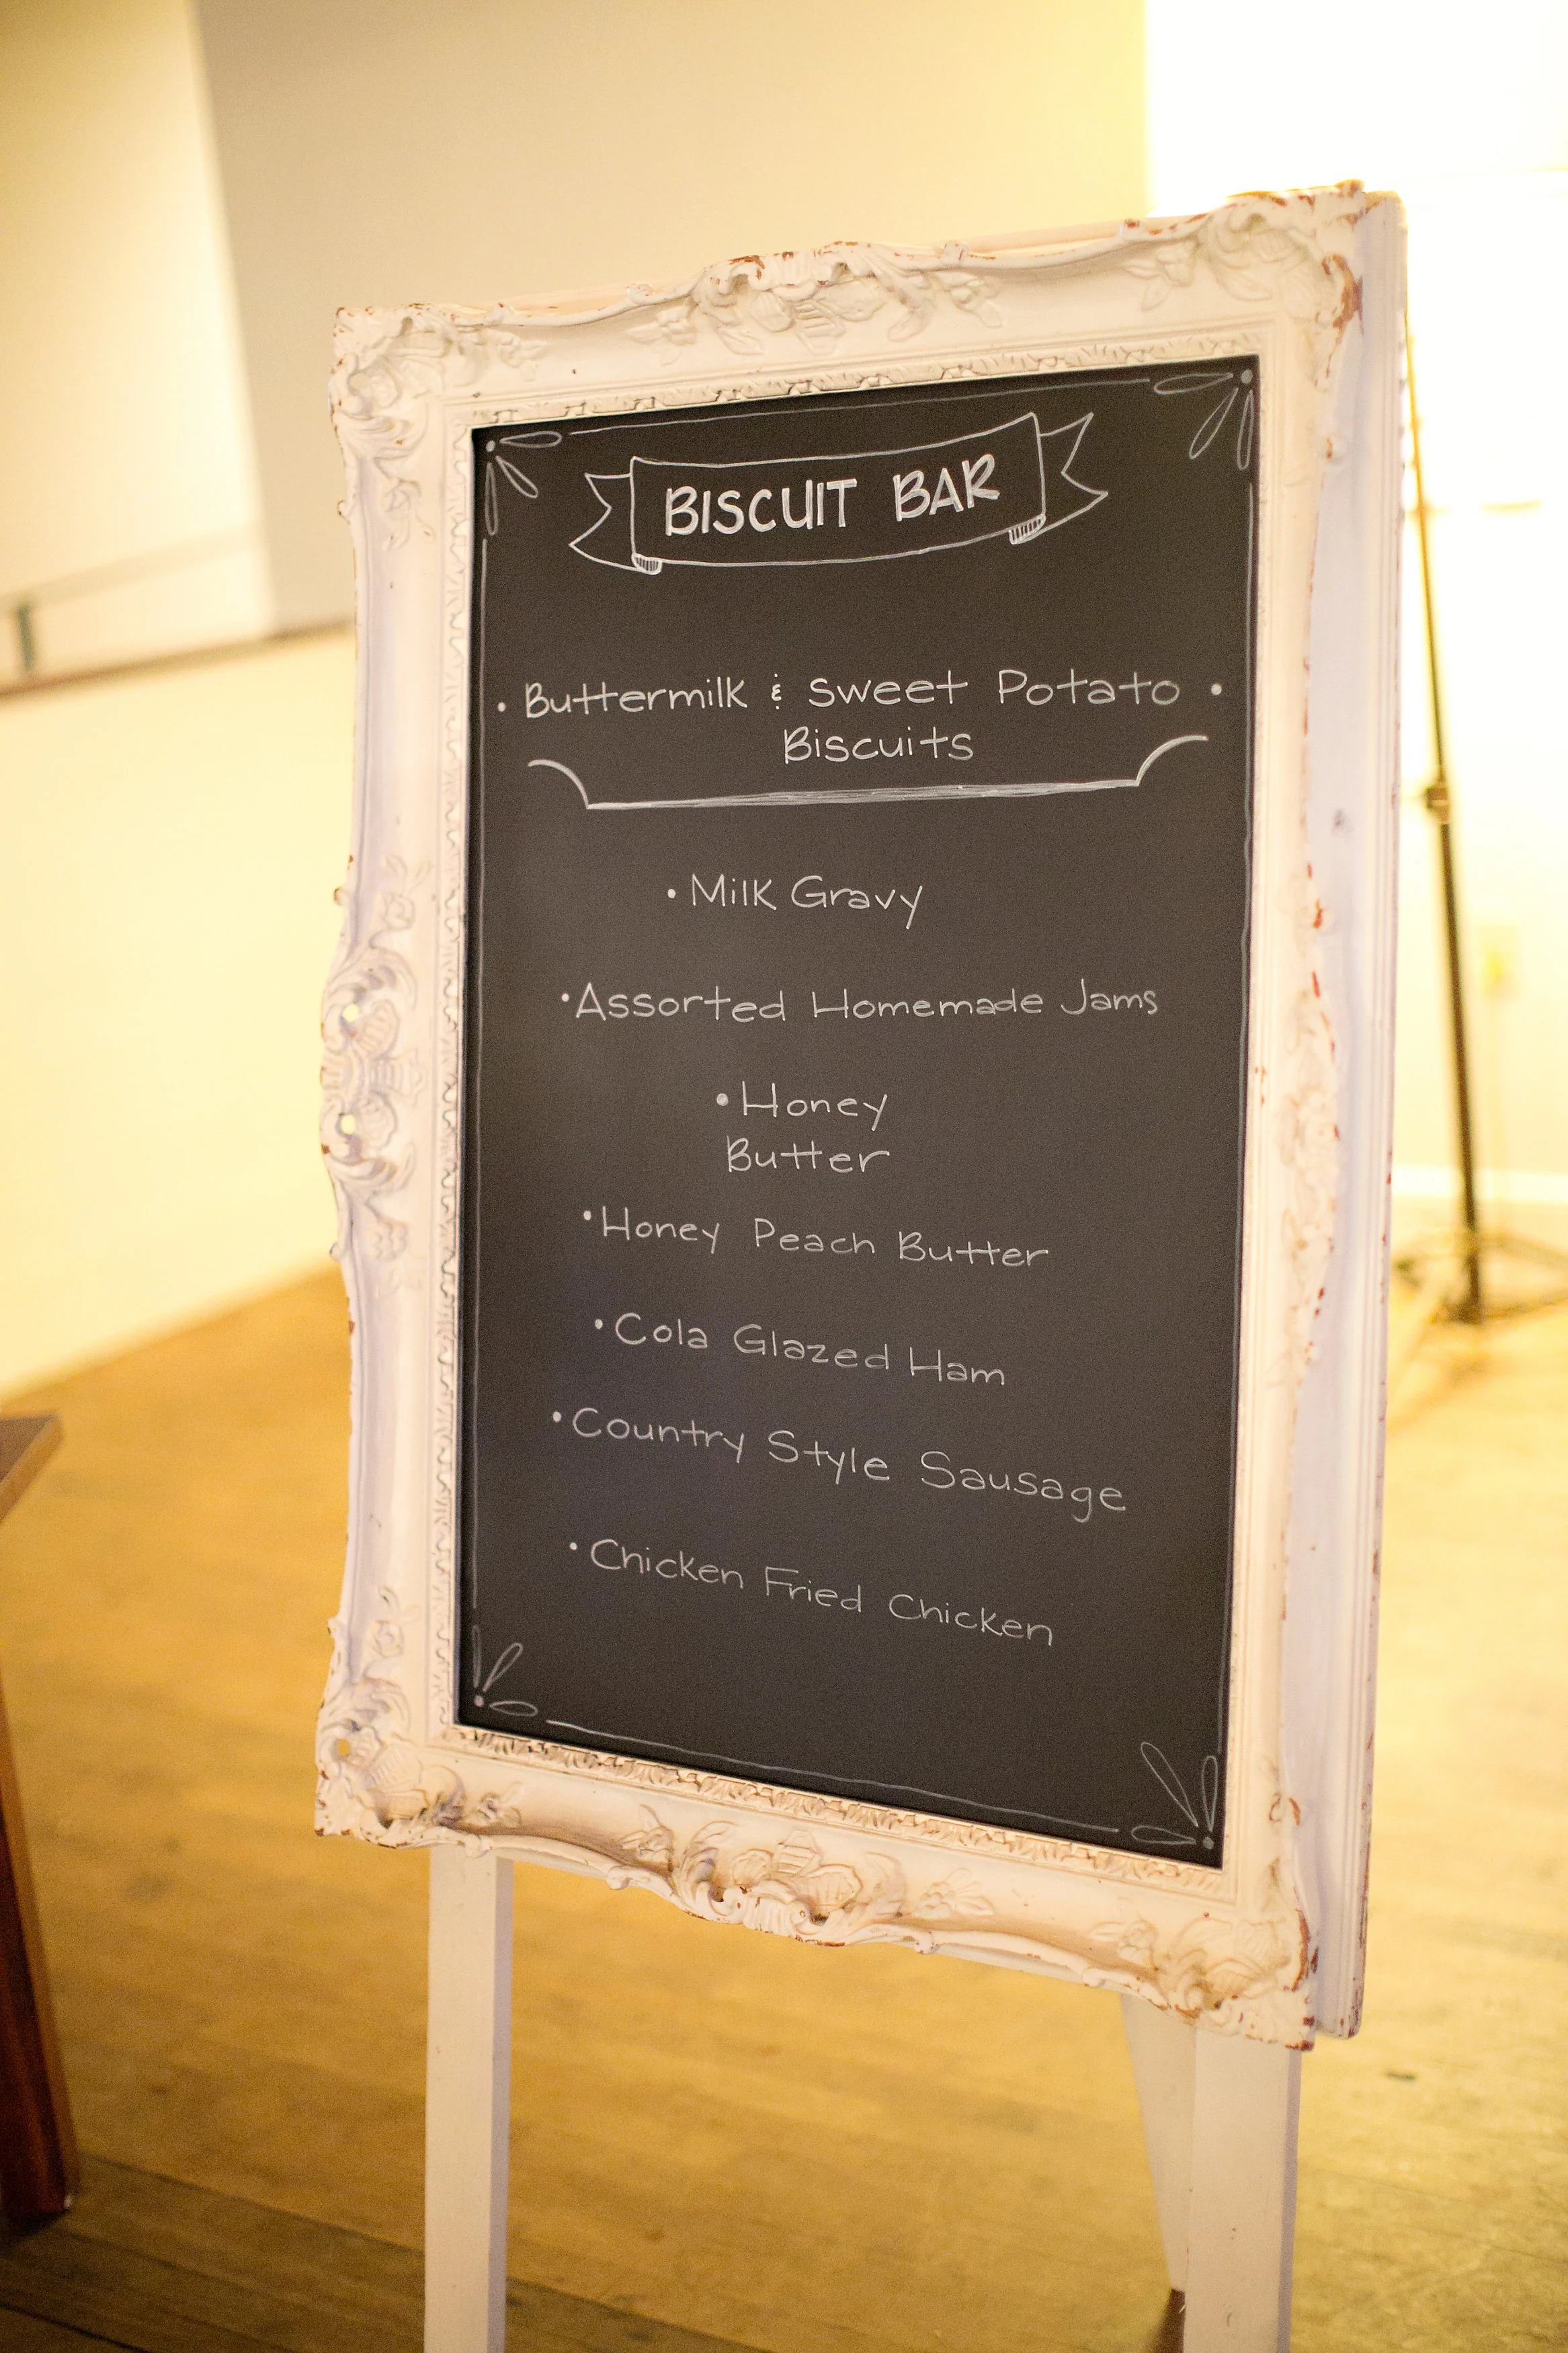 BISCUIT BAR
• Buttermilk & Sweet Potato •
Biscuits
• Milk Gravy
• Assorted Homemade Jams
• Honey
Butter
• Honey Peach Butter
• Cola Glazed Ham
• Country Style Sausage
• Chicken Fried Chicken